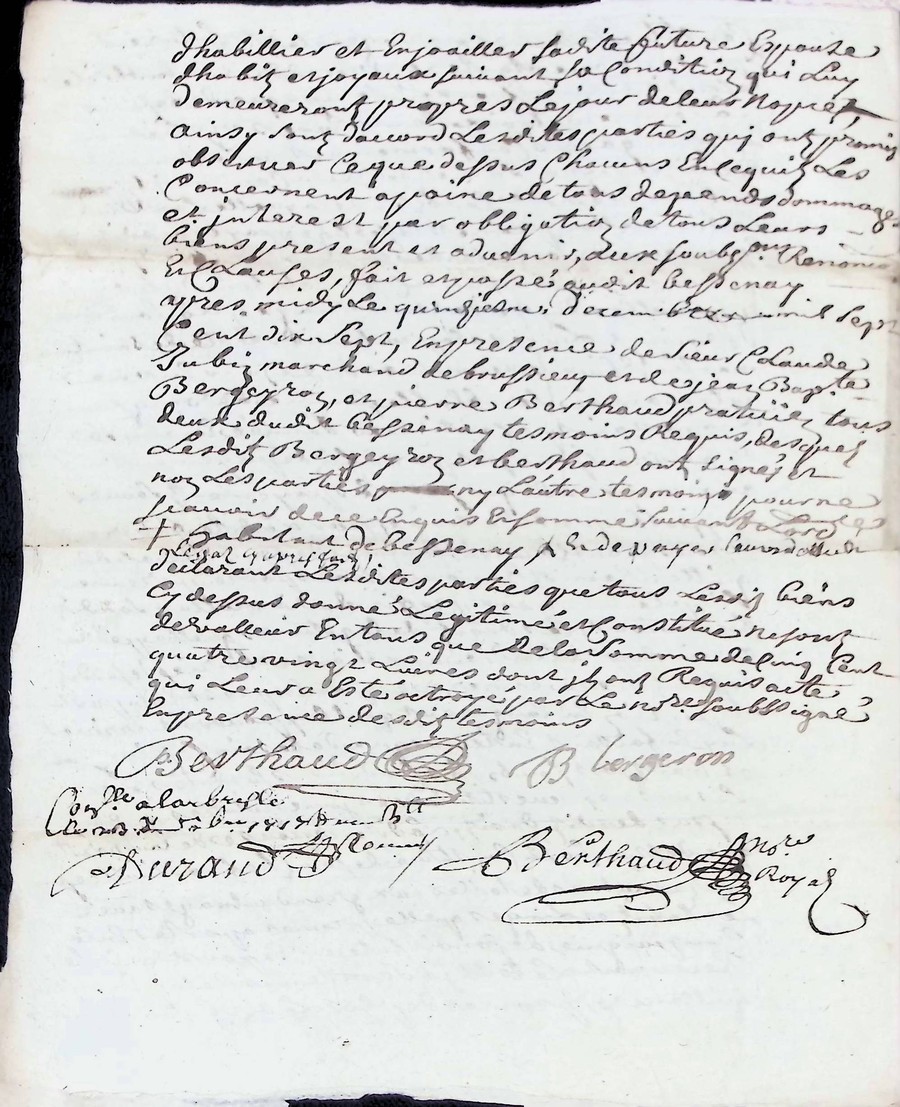 dhabillier et Enjoailler sadite future Espouze
dhabitz et joyaux suivant sa Condition qui Luy
demeureront propres Le jour de leur Nopces,
ainsy sont daccord Lesdites parties qui ont promis
observer Ce que dessus Chacuns En ce quil Les
Concernent a paine de tous depends dommages
et interest par obligation de tous Leurs
biens present et advenir, aux soubz.ons Renonca.
Et Clauses, fait et passé audit bessenay
apres midy Le quinzieme decembre mil sept
Cent dix sept, En presence de sieur Claude
Jubin marchand de brussieu et de jean Bapte
Bergeyron, et pierre Berthaud praticien tous
deux dudit bessenay tesmoins Requis, desquels
Lesditz Bergeyron et berthaud ont signés et
non Les parties, ny Lautre tesmoins pour ne
scavoir de ce Enquis Et sommé suivant Lord.ces
+ habitant de bessenay
declarant Lesdites parties que tous Lesditz biens
Cy dessus donné Legitimé et Constitué ne sont
de valleur En tous que de la somme de Cinq Cent
quatre vingt Livres dont jls ont Requis acte
qui Leur a Esté octroyé par Le nore. soubssigné
En presence desditz tesmoins
Berthaud B bergeron
Con.lle a larbresle
Durand Berthaud nore
Royal